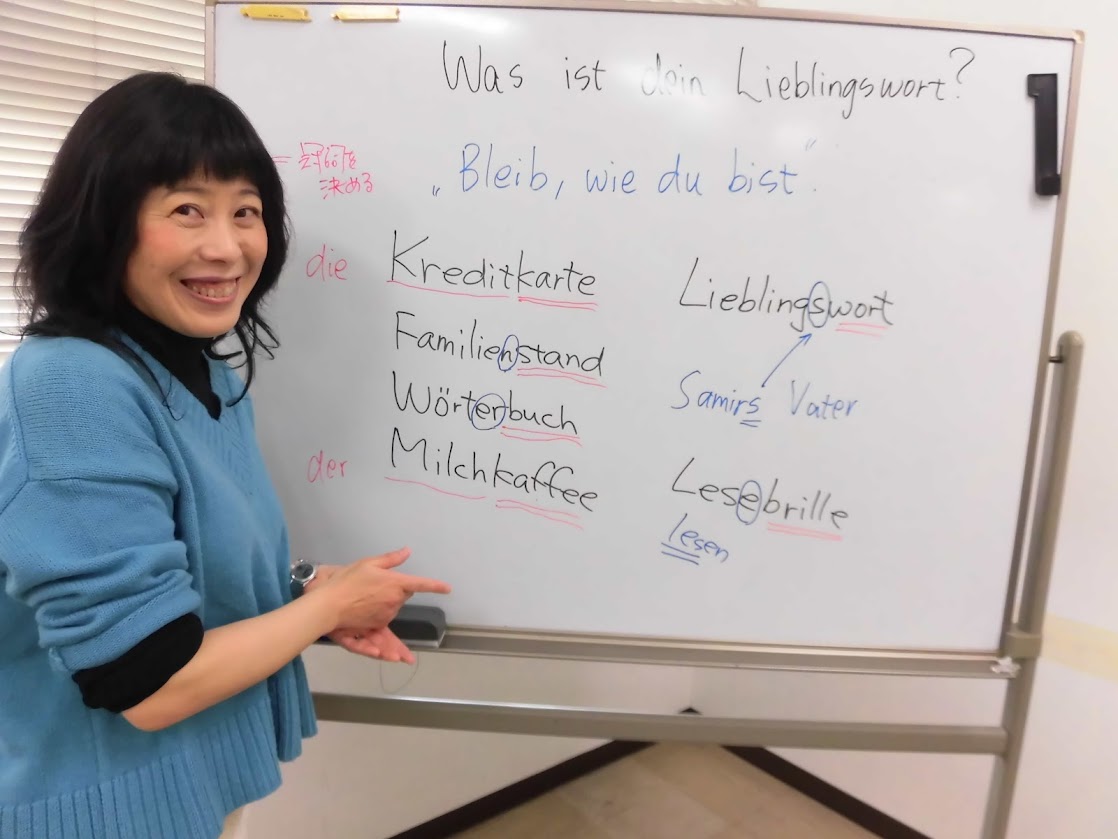 Was ist dein Lieblingswort?
= 冠詞を
決める
„Bleib, wie du bist."
die Kreditkarte
Familienstand
Wörterbuch
der Milchkaffee
Lieblingswort
Samirs Vater
Lesebrille
lesen